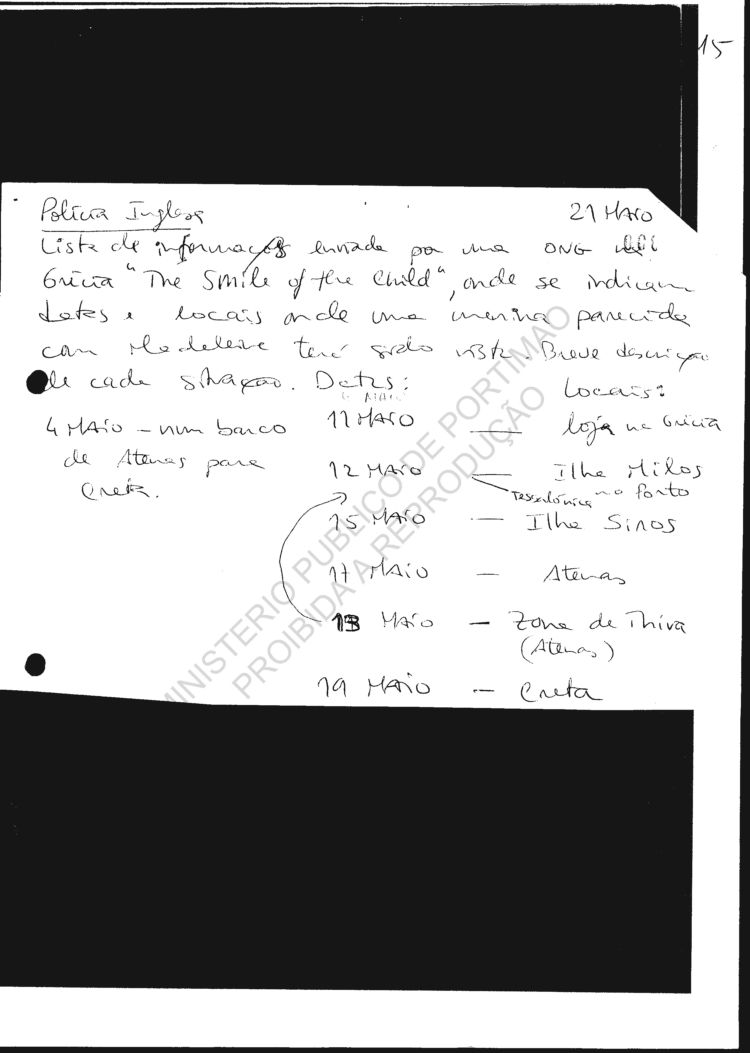 15
Polícia Inglesa 21 MAIO
Lista de informações enviada por uma ONG da
Grécia "The Smile of the Child", onde se indicam
datas e locais onde uma menina parecida
com Madeleine terá sido vista. Breve descrição
de cada situação. Datas: Locais:
4 MAIO - num barco
de Atenas para
Creta.
11 MAIO — loja na Grécia
12 MAIO — Ilha Milos
Tessalónica no Porto
15 MAIO — Ilha Siros
17 MAIO — Atenas
13 MAIO — Zona de Thiva
(Atenas)
19 MAIO — Creta
MINISTERIO PUBLICO DE PORTIMAO
PROIBIDA A REPRODUÇÃO